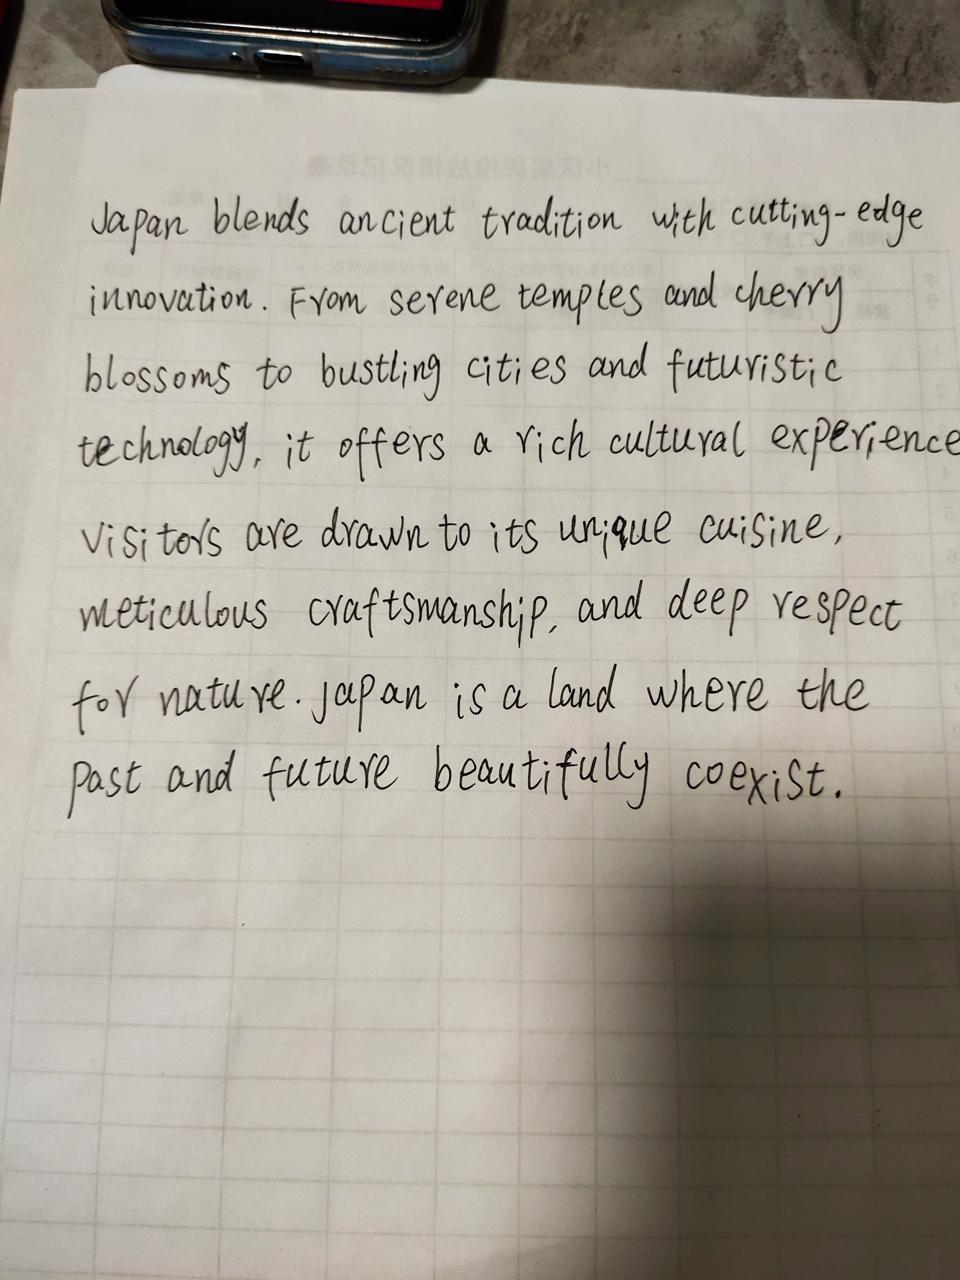 Japan blends ancient tradition with cutting-edge
innovation. From serene temples and cherry
blossoms to bustling cities and futuristic
technology, it offers a rich cultural experience
Visitors are drawn to its unique cuisine,
meticulous craftsmanship, and deep respect
for nature. Japan is a land where the
past and future beautifully coexist.